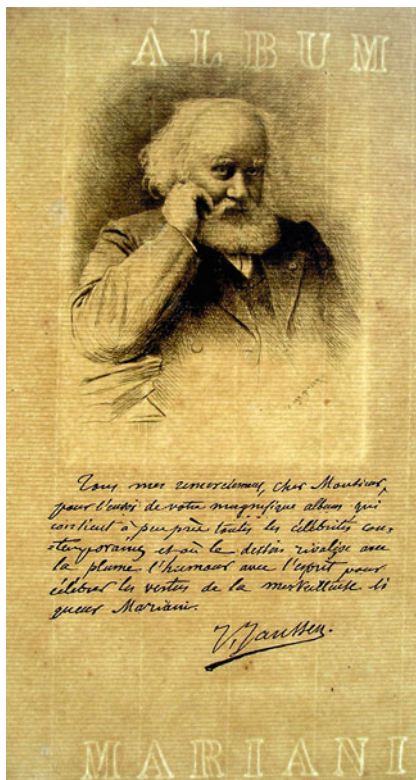 ALBUM
Tous mes remerciements, cher Monsieur,
pour l'envoi de votre magnifique album qui
contient à peu près toutes les célébrités con-
temporaines et où le dessin rivalise avec
la plume l'humour avec l'esprit pour
célébrer les vertus de la merveilleuse li
queur Mariani.
J. Janssen.
MARIANI